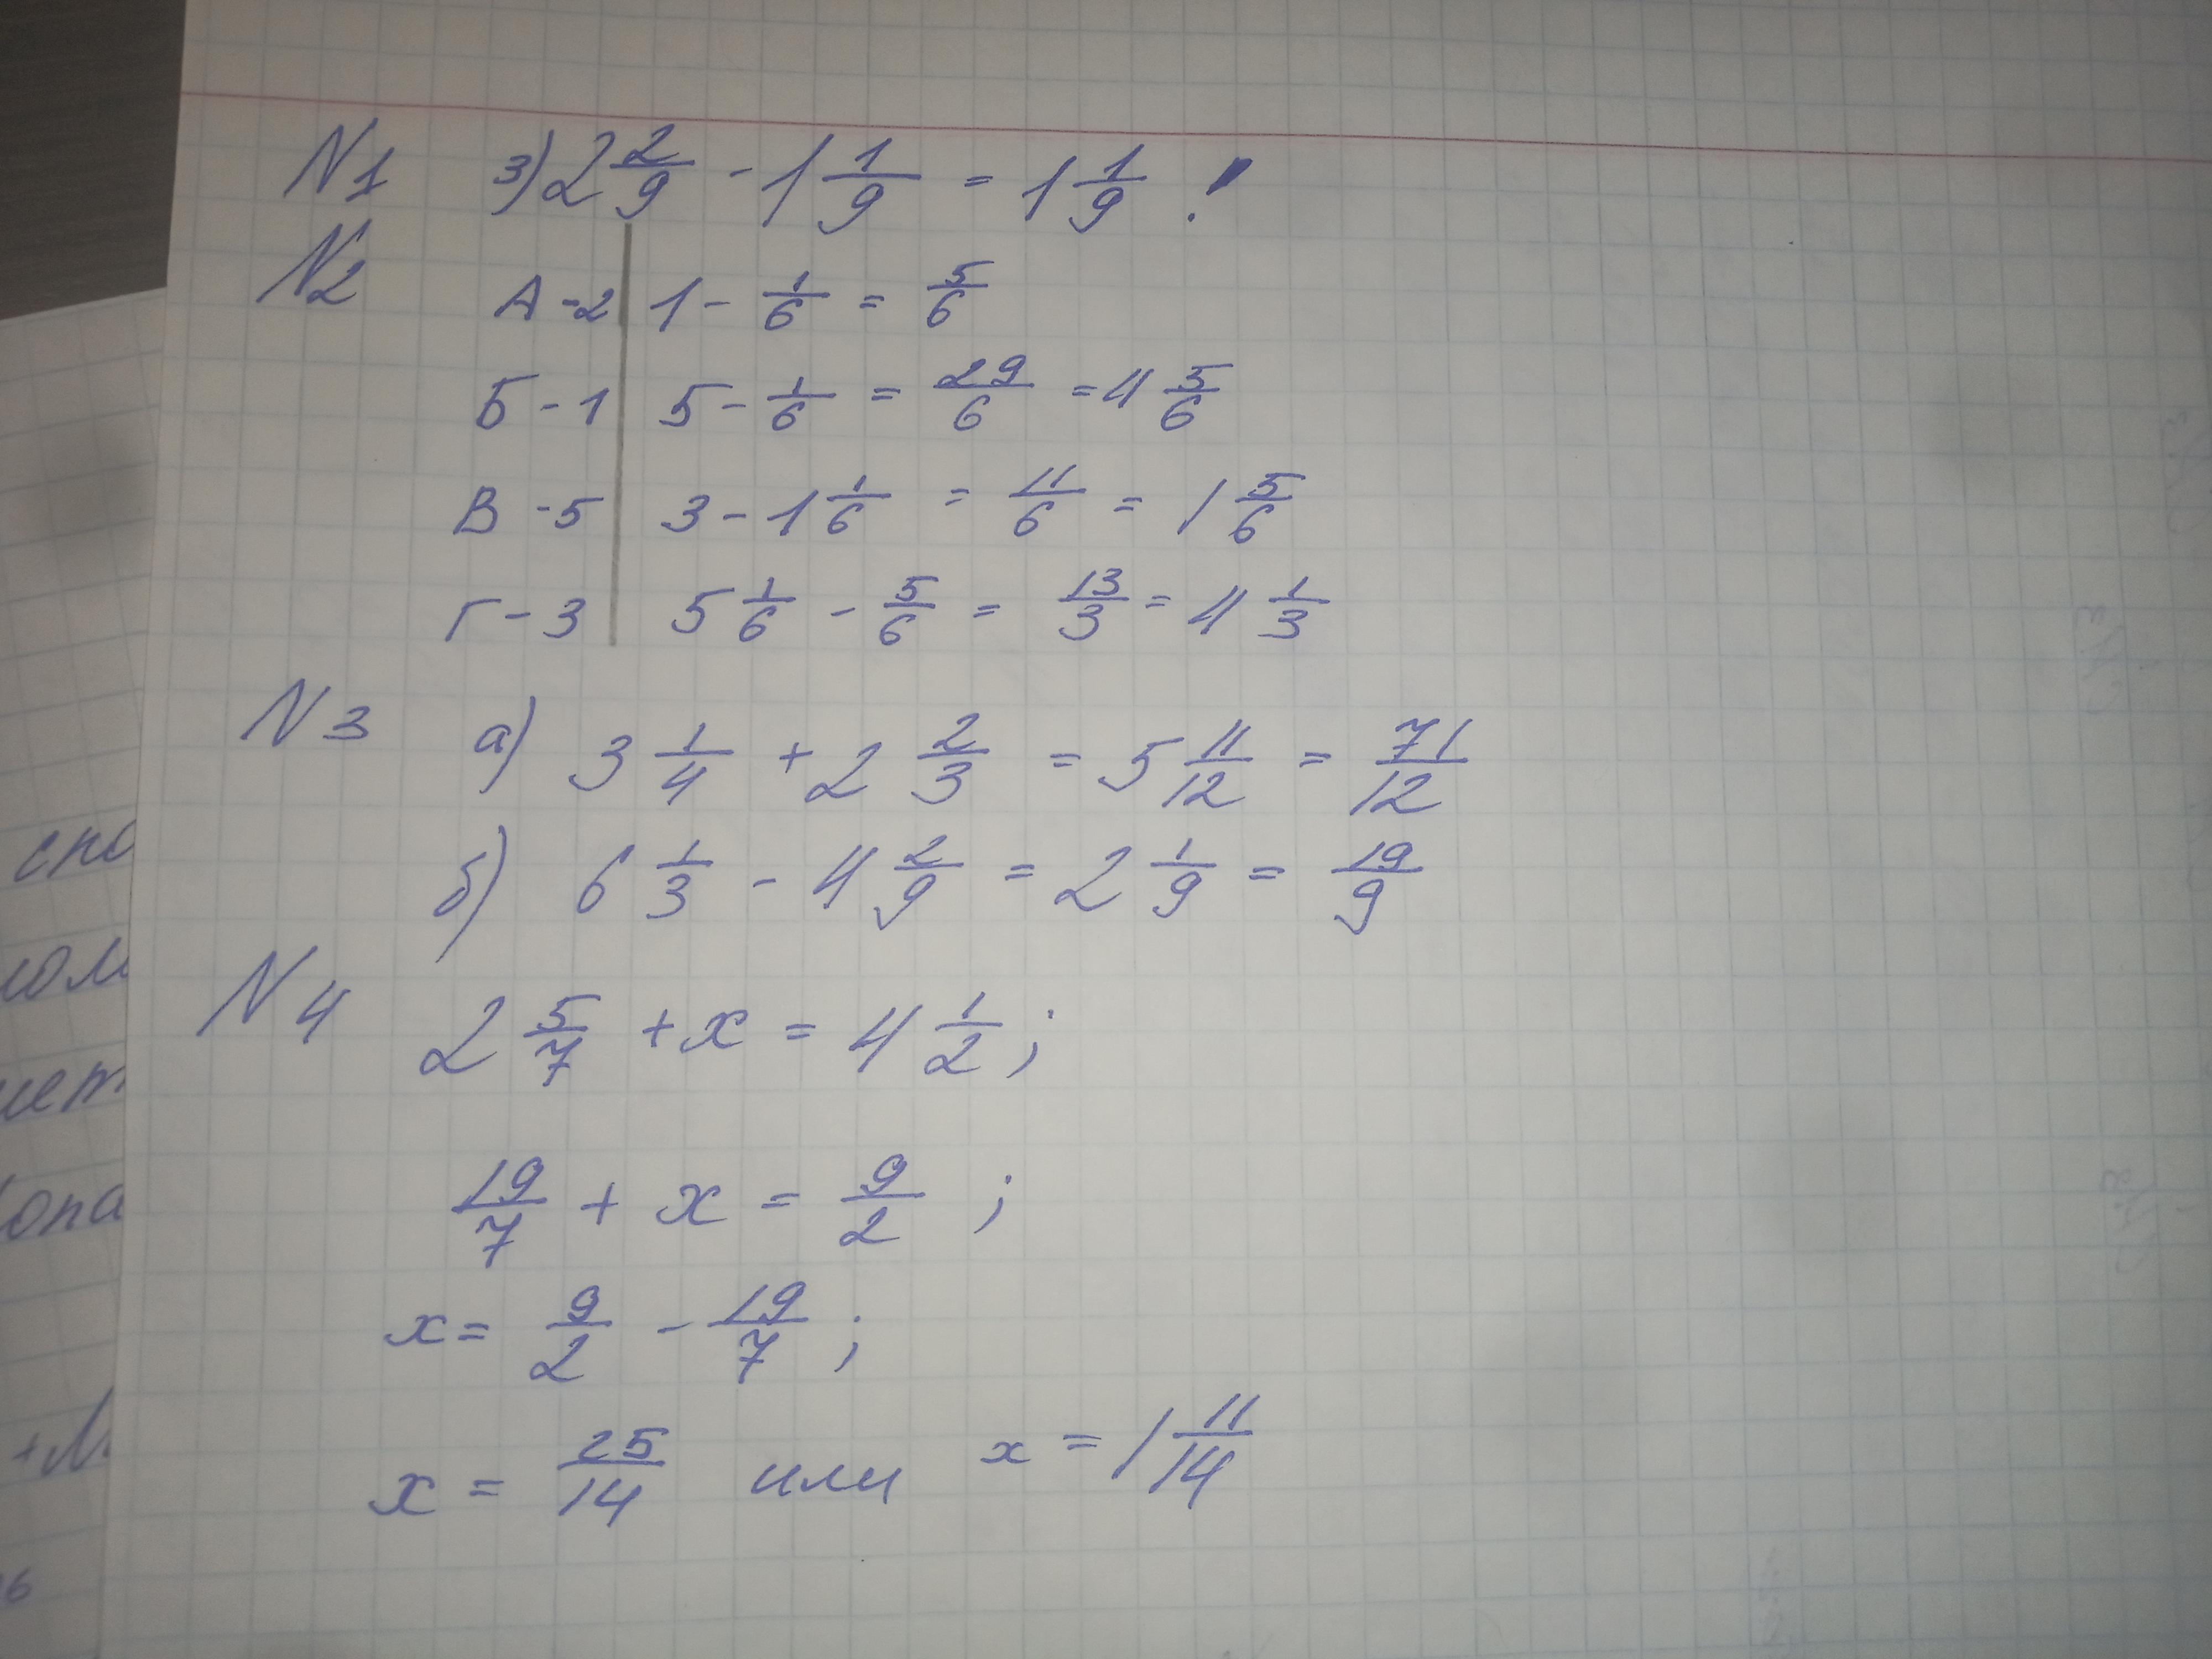 N1 3) 2 2/9 - 1 1/9 = 1 1/9 !
N2
А - 2 1 - 1/6 = 5/6
Б - 1 5 - 1/6 = 29/6 = 4 5/6
В - 5 3 - 1 1/6 = 11/6 = 1 5/6
Г - 3 5 1/6 - 5/6 = 13/3 = 4 1/3
N3 а) 3 1/4 + 2 2/3 = 5 11/12 = 71/12
б) 6 1/3 - 4 2/9 = 2 1/9 = 19/9
N4 2 5/7 + x = 4 1/2 ;
19/7 + x = 9/2 ;
x = 9/2 - 19/7 ;
x = 25/14 или x = 1 11/14